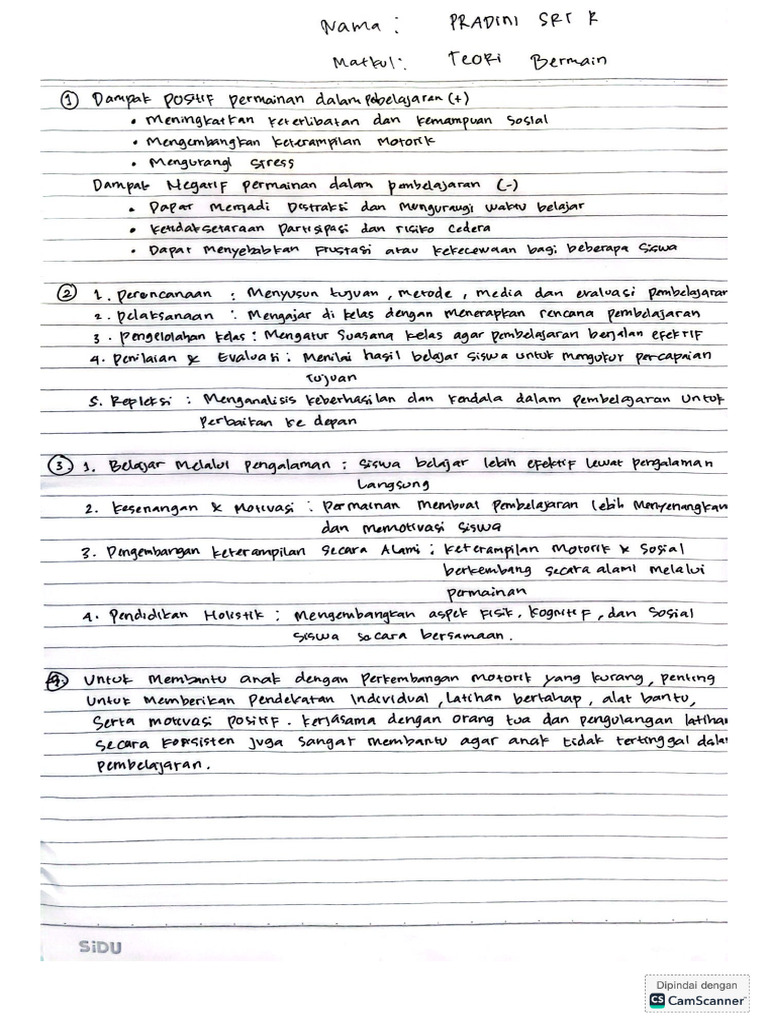 Nama : PRADINI SRI R
Matkul : Teori Bermain
① Dampak Positif permainan dalam pebelajaran (+)
• Meningkatkan keterlibatan dan kemampuan Sosial
• Mengembangkan keterampilan Motorik
• Mengurangi stress
Dampak Negatif permainan dalam pembelajaran (-)
• Dapat menjadi Distraksi dan mengurangi waktu belajar
• ketidaksetaraan partisipasi dan risiko cedera
• Dapat Menyebabkan Frustasi atau kekecewaan bagi beberapa siswa
② 1. perencanaan : Menyusun tujuan, metode, media dan evaluasi pembelajaran
2. pelaksanaan : Mengajar di kelas dengan menerapkan rencana pembelajaran
3. Pengelolahan kelas : Mengatur Suasana kelas agar pembelajaran berjalan efektif
4. Penilaian & Evaluasi : Menilai hasil belajar siswa untuk mengukur percapaian
tujuan
5. Repleksi : Menganalisis keberhasilan dan kendala dalam pembelajaran untuk
perbaikan ke depan
③ 1. Belajar Melalui pengalaman : siswa belajar lebih efektif lewat pengalaman
langsung
2. kesenangan & Motivasi : Permainan membuat pembelajaran lebih Menyenangkan
dan memotivasi siswa
3. Pengembangan keterampilan Secara Alami : keterampilan Motorik & Sosial
berkembang secara alami melalui
permainan
4. Pendidikan Holistik : Mengembangkan aspek fisik, kognitif, dan Sosial
siswa secara bersamaan.
④. Untuk Membantu anak dengan perkembangan motorik yang kurang, penting
untuk memberikan pendekatan individual, latihan bertahap, alat bantu,
serta motivasi positif. kerjasama dengan orang tua dan pengulangan latihan
secara konsisten juga sangat membantu agar anak tidak tertinggal dalam
pembelajaran.
SiDU
Dipindai dengan
CS CamScanner